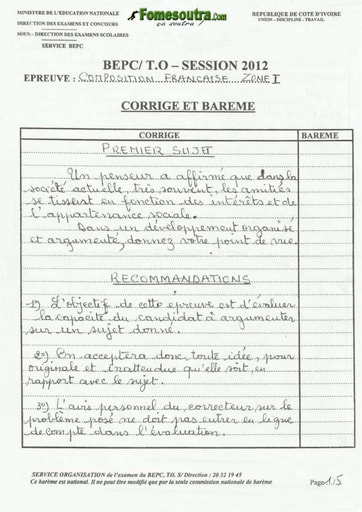 MINISTERE DE L'EDUCATION NATIONALE
DIRECTION DES EXAMENS ET CONCOURS
SOUS – DIRECTION DES EXAMENS SCOLAIRES
SERVICE BEPC
Fomesoutra.com
ça soutra !
REPUBLIQUE DE COTE D'IVOIRE
UNION – DISCIPLINE - TRAVAIL
BEPC/ T.O – SESSION 2012
EPREUVE : COMPOSITION FRANCAISE ZONE I
CORRIGE ET BAREME
CORRIGE
BAREME
PREMIER SUJET
Un penseur a affirmé que dans la
société actuelle, très souvent, les amitiés
se tissent en fonction des intérêts et de
l'appartenance sociale.
Dans un développement organisé
et argumenté, donnez votre point de vue.
RECOMMANDATIONS
1°) L'objectif de cette épreuve est d'évaluer
la capacité du candidat à argumenter
sur un sujet donné.
2°) On acceptera donc toute idée, pour
originale et inattendue qu'elle soit, en
rapport avec le sujet.
3°) L'avis personnel du correcteur sur le
problème posé ne doit pas entrer en ligne
de compte dans l'évaluation.
SERVICE ORGANISATION de l'examen du BEPC, Tél. S/ Direction : 20 32 19 45
Ce barème est national. Il ne peut être modifié que par la seule commission nationale de barème
Page 1/5